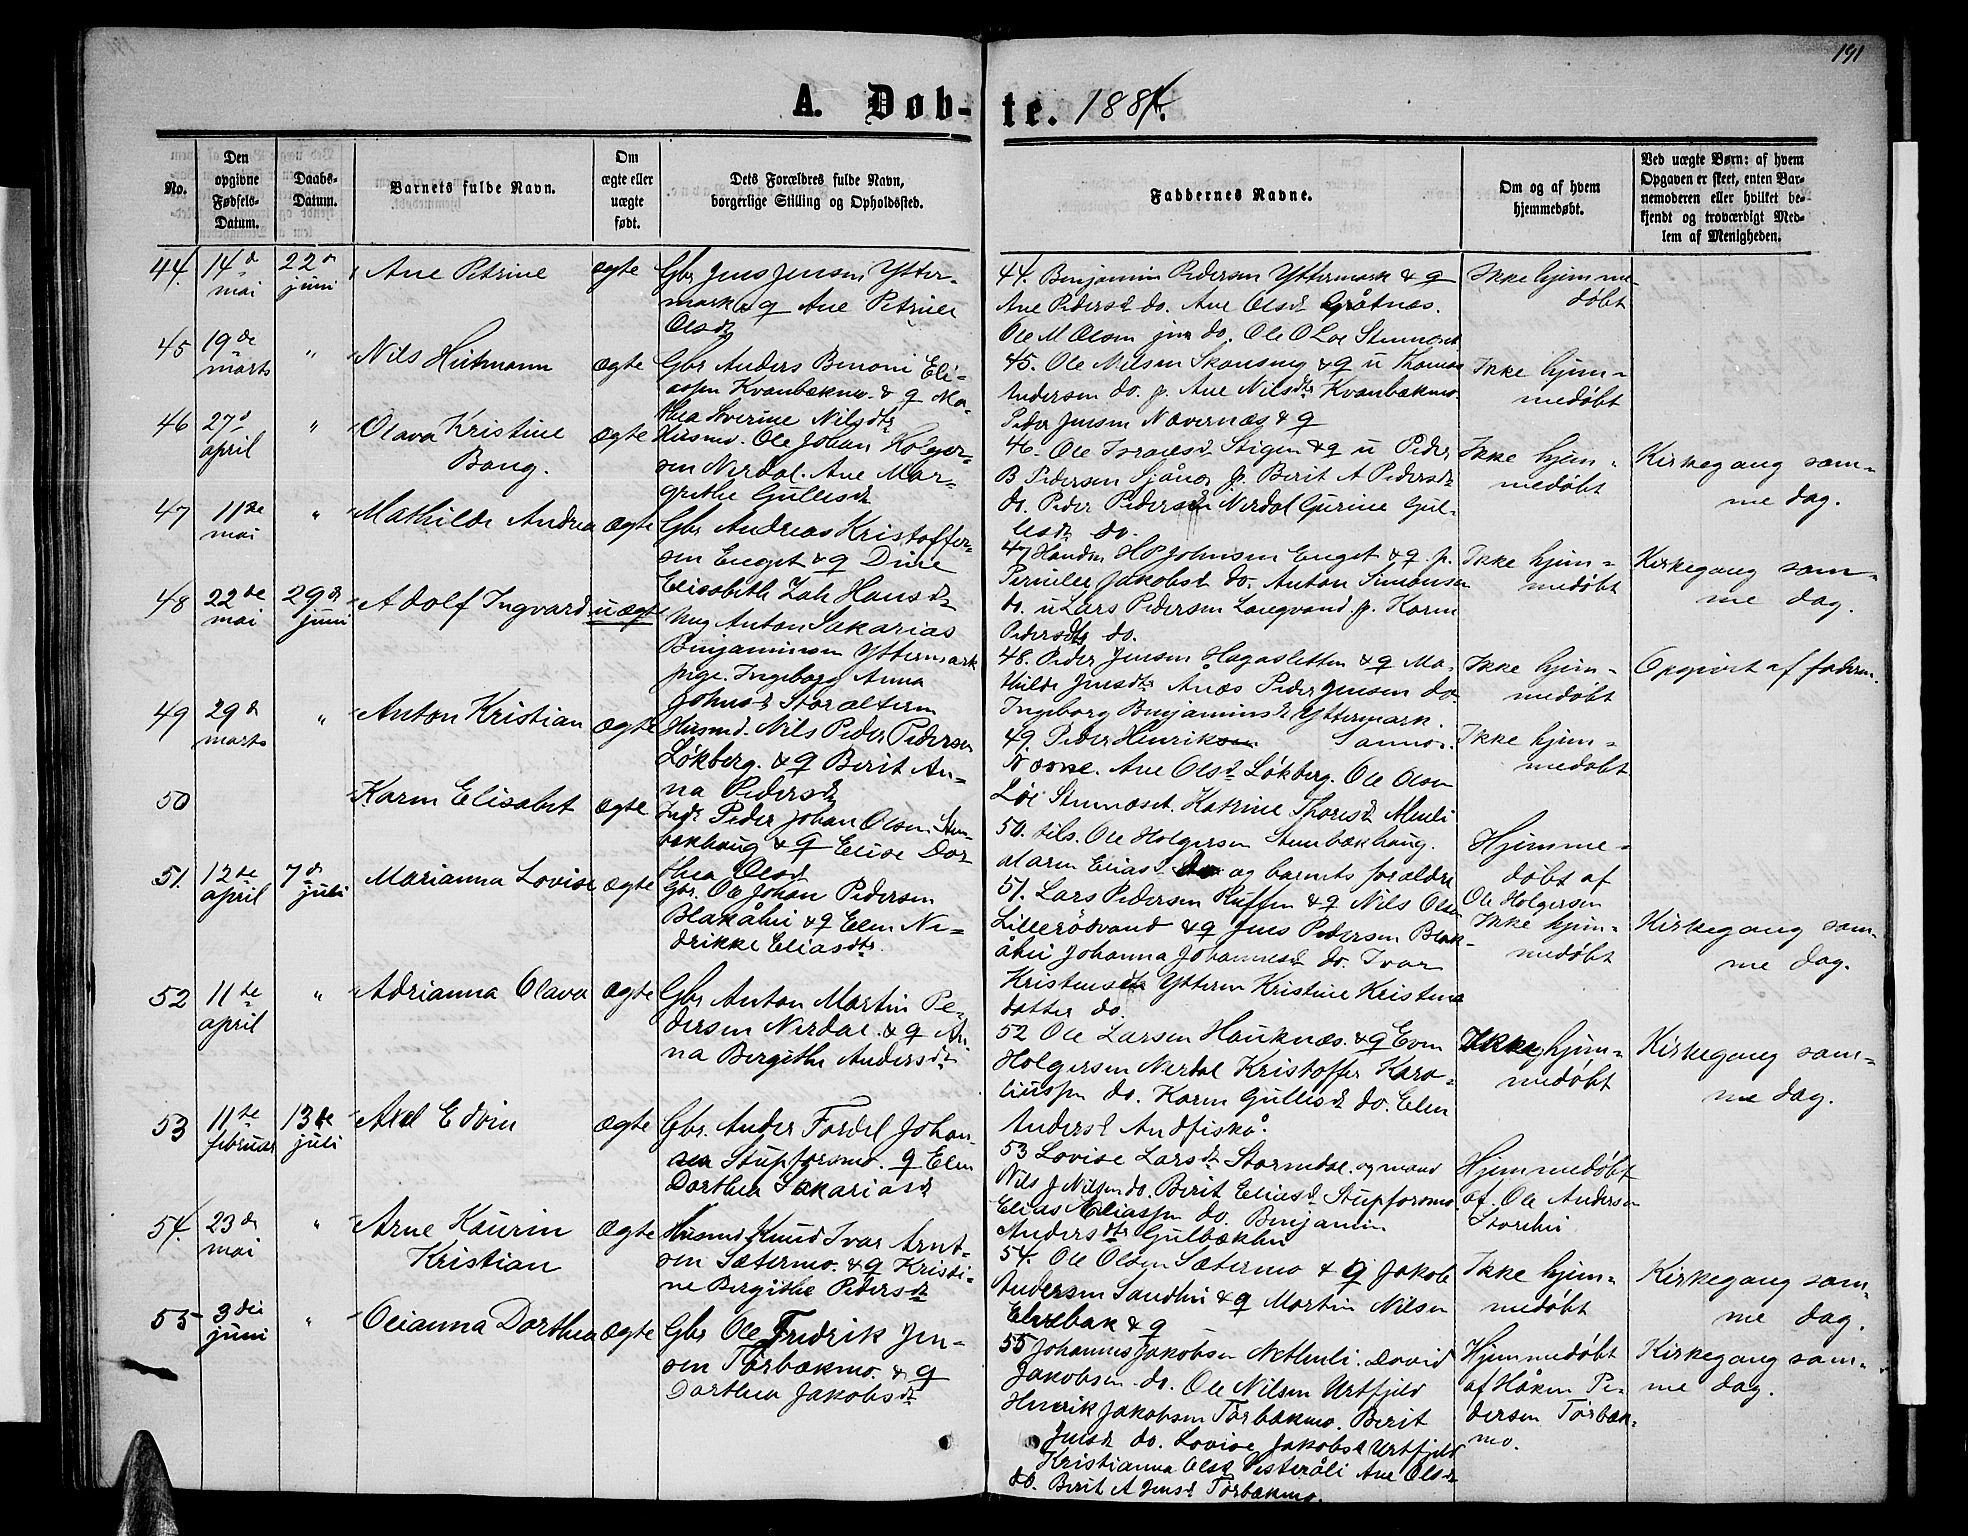 191
A. Døb-te. 1884.
No.
Den opgivne Fødsels-Datum.
Daabs-Datum.
Barnets fulde Navn.
Om ægte eller uægte født.
Dets Forældres fulde Navn, borgerlige Stilling og Opholdssted.
Faddernes Navne.
Om og af hvem hjemmedøbt.
Ved uægte Børn: af hvem Opgaven er skeet, enten Barnemoderen eller hvilket bekjendt og troværdigt Medlem af Menigheden.
44. 14d mai 22d juni Ane Petrine ægte
Gbr Jens Jensen Ytter-
mark & q Ane Petrine
Olsdt
44. Benjamin Pedersen Yttermark & q
Ane Pedersd do. Ane Olsdt Gråtnæs.
Ole M Olsen jun do. Ole O Loe Stennæset
Ikke hjemme-
døbt
45 19de marts " Nils Heitmann ægte
Gbr Anders Benoni Eli-
assen Kvanbækmo. & q Ma-
thea Severine Nilsdtr
45. Ole Nilsen Skonseng & q u Thomas
Andersen do. p. Ane Nilsdtr Kvanbækmo.
Peder Jensen Nævernæs & q
Ikke hjem-
medøbt
46 27d april " Olava Kristine
Bang. ægte
Husmd. Ole Johan Holger-
sen Nerdal. Ane Mar-
grethe Gullesdt
46. Ole Israels Stigen & q u Peder
B Pedersen Sjånes p. Berit A Pedersdt
do. Peder Pedersen Nerdal Gurine Gul-
lesdt do.
Ikke hjem-
medøbt
Kirkegang sam-
me dag.
47 11te mai " Mathilde Andrea ægte
Gbr Andreas Kristoffer-
sen Enget & q Dine
Elisabeth Zah Hansdt
47 Handm HP Johnsen Enget & q. p.
Pernille Jakobsd do. Anton Simonsen
do. u Lars Pedersen Langvand. p. Karen
Pedersdtr do.
Ikke hjem-
medøbt
Kirkegang sam-
me dag.
48 22de mai 29d juni Adolf Ingvard uægte
Ung Anton Sakarias
Benjaminsen Yttermark
pige. Ingeborg Anna
Johnsd Storalteren
48. Peder Jensen Hagasletten & q Ma-
thilde Jensdtr Anæs Peder Jensen do
Ingeborg Benjaminsd Yttermark.
Ikke hjem-
medøbt
Opgivet af faderen.
49 29d marts " Anton Kristian ægte
Husmd. Nils Peder Pedersen
Løkberg. & q Berit An-
na Pedersdt
49. Peder Henriksen
Ane Olsd Løkberg. Ole Olsen
Løe Stennæset. Katrine Thoresdt Almli
Ikke hjem-
medøbt
50 Karen Elisabet ægte
Inds. Peder Johan Olsen Sten-
bækhaug & q Elise Dor-
thea Olsdt
50. tils. Ole Holgersen Stenbækhaug.
Maren Eliasd. do og barnets forældre
Hjemme-
døbt af
Ole Holgersen
51. 12te april 7d juli Marianna Lovise ægte
Gbr. Ole Johan Pedersen
Blakåhei & q Elen Ne-
drikke Eliasdtr.
51. Lars Pedersen Ruffen & q Nils Olsen
Lillerødvand & q Jens Pedersen Blak-
åhei Johanna Johannesdt do. Ivar
Kristensen Ytteren Kristine Kristens
datter do.
Ikke hjem-
medøbt
Kirkegang sam-
me dag.
52 11te april " Adrianna Olava ægte
Gbr Anton Martin Pe-
dersen Nerdal. & q An-
na Bergithe Andersdt
52 Ole Larsen Hauknæs. & q Even
Holgersen Nerdal Kristoffer Karo-
liussen do. Karen Gullesdt do. Elen
Andersd Andfiskå.
Ikke hjem-
medøbt
Kirkegang sam-
me dag.
53 11te februar 13de juli Axel Edvin ægte
Gbr. Ander Fordel Johan-
sen Stupforsmo. q Elen
Dorthea Sakariasdt
53 Lovise Larsdt Stormdal. og mand
Nils J Nilsen do. Berit Eliasd Stupforsmo
Elias Eliassen do. Benjamin
Andersdtr Gulbæklien
Hjemmedøbt
af Ole Andersen
Storlien
54. 23d mai " Arne Kaurin
Kristian ægte
Husmd Knud Ivar Arnt-
sen Sætermo. & q Kristi-
ne Bergithe Pedersdt
54. Ole Olsen Sætermo & q Jakob
Andersen Sandhei & q Martin Nilsen
Elvebak & q
Ikke hjem-
medøbt
Kirkegang sam-
me dag.
55 3die juni " Oleanna Dorthea ægte
Gbr Ole Fredrik Jen-
sen Tørbækmo. & q
Dorthea Jakobsdt
55 Johannes Jakobsen N Almli. David
Jakobsen do. Ole Nilsen Urtfjeld
Henrik Jakobsen Tørbækmo. Berit
Jensdt do. Lovise Jakobsd Urtfjeld
Kristianna Olsd Vesteråli Ane Olsdt
do. Berit A Jensd Tørbækmo.
Hjemmedøbt
af Håken Pe-
dersen Tørbæk-
mo.
Kirkegang sam-
me dag.